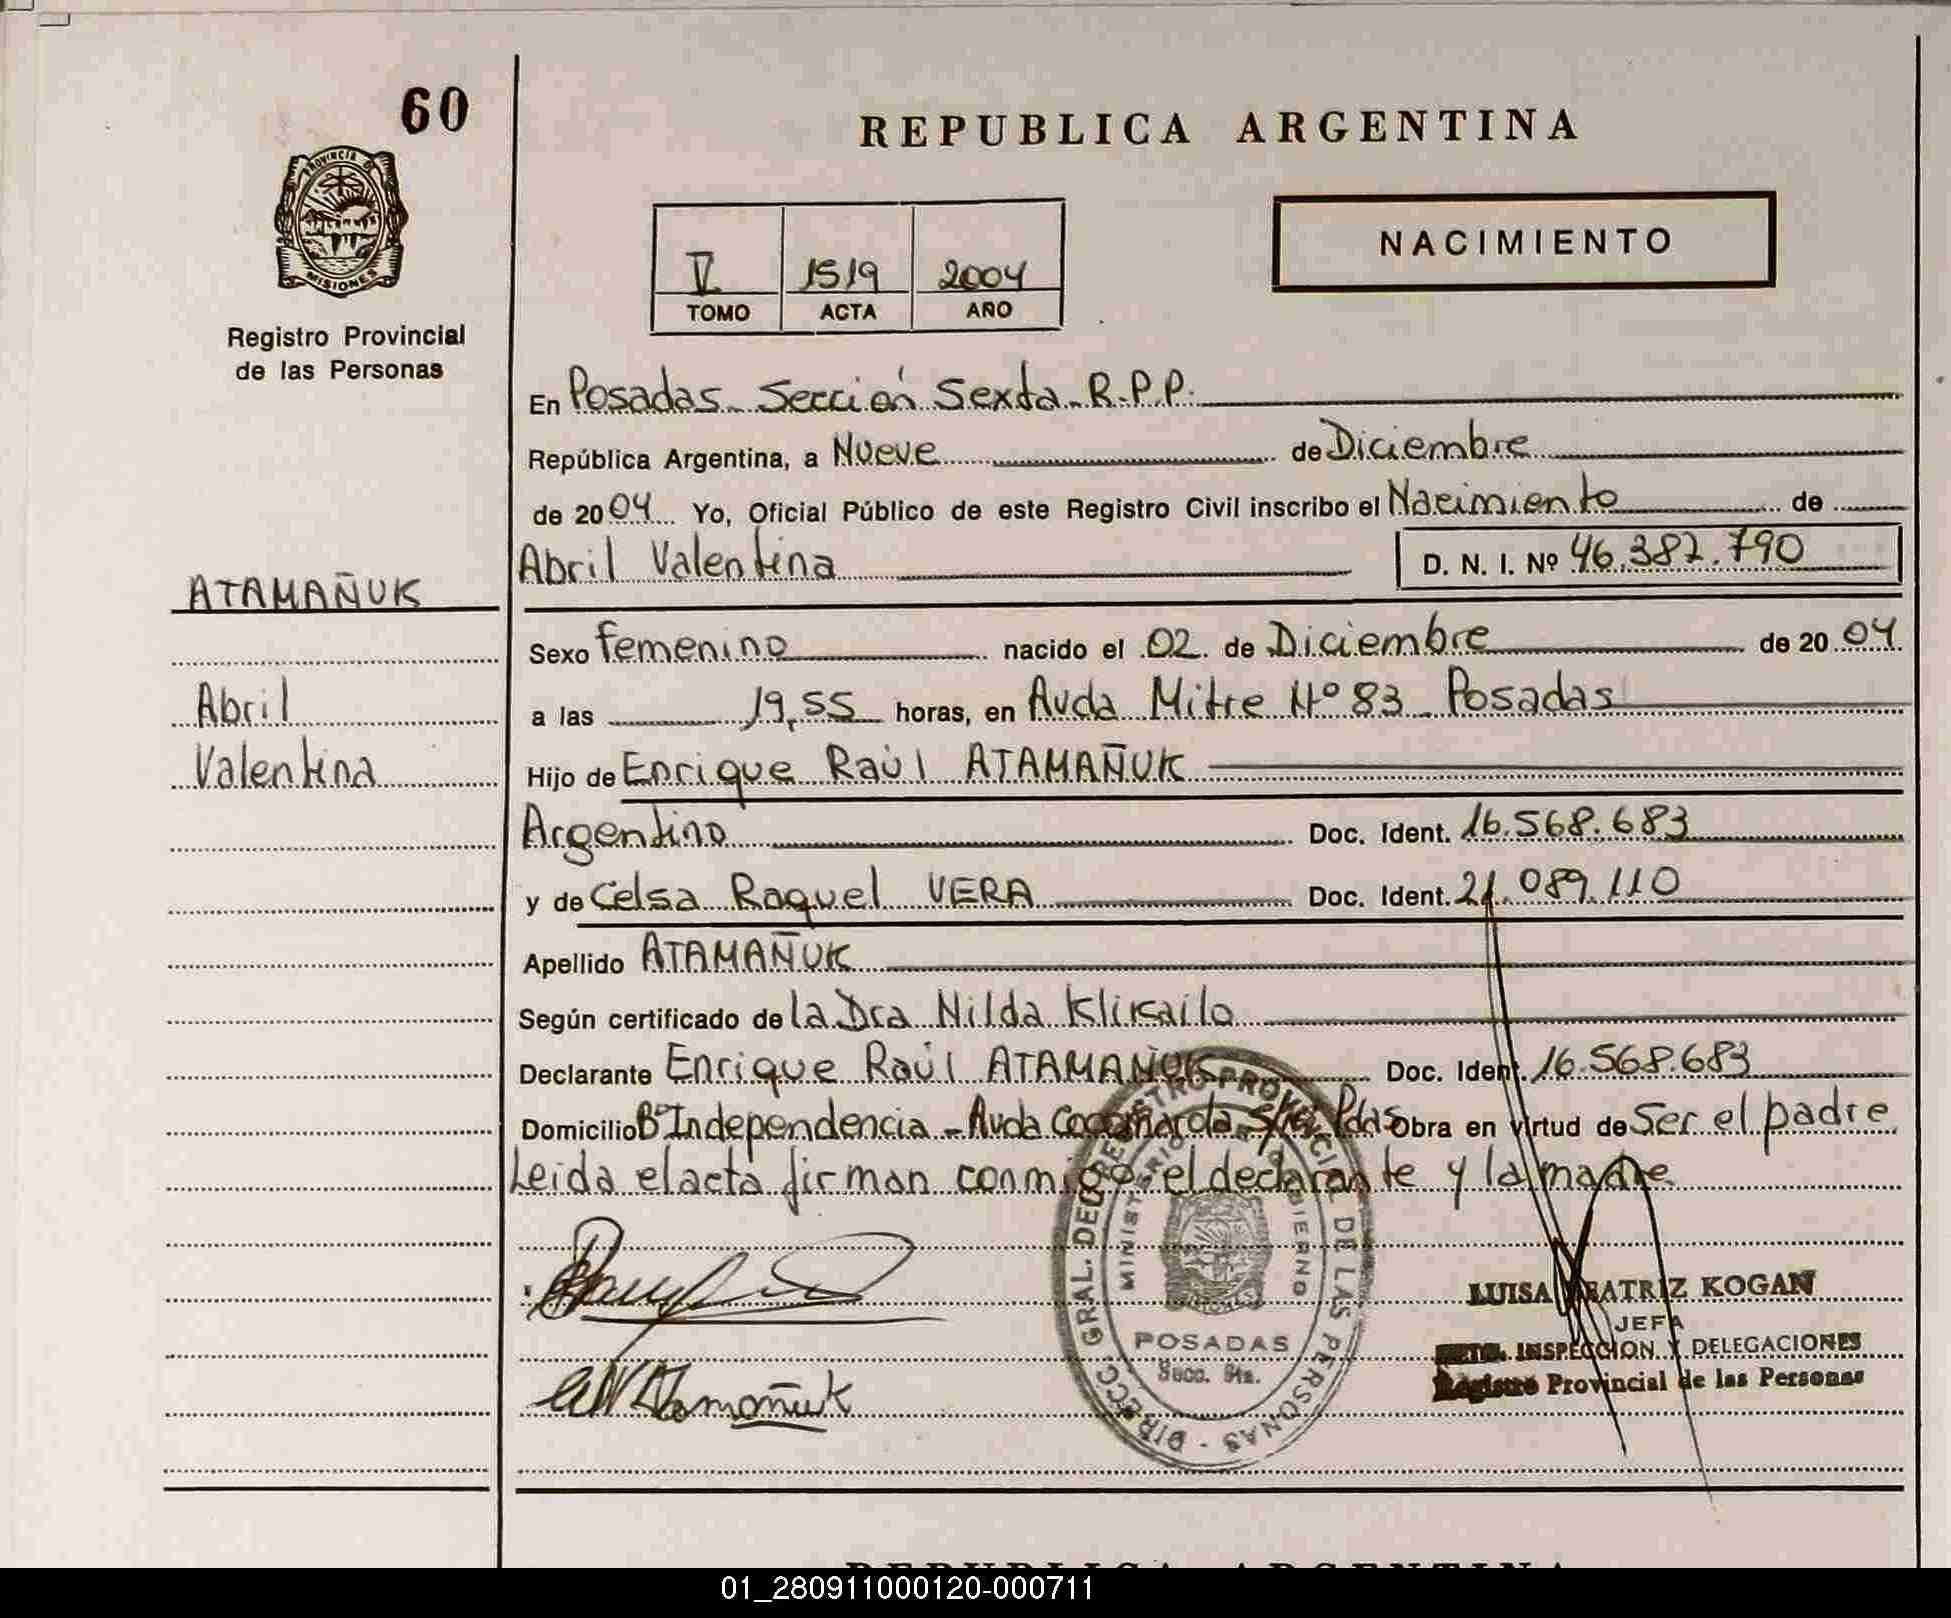 60
REPUBLICA ARGENTINA
PROVINCIA DE
MISIONES
Registro Provincial
de las Personas
NACIMIENTO
V 1519 2004
TOMO ACTA AÑO
En Posadas - Sección Sexta - R.P.P.
República Argentina, a Nueve de Diciembre
de 2004 Yo, Oficial Público de este Registro Civil inscribo el Nacimiento de
Abril Valentina D. N. I. Nº 46.387.790
ATAMAÑUK
Sexo femenino nacido el 02 de Diciembre de 2004
Abril
a las 19,55 horas, en Avda Mitre Nº 83 - Posadas
Valentina
Hijo de Enrique Raúl ATAMAÑUK
Argentino Doc. Ident. 16.568.683
y de Celsa Raquel VERA Doc. Ident. 21.089.110
Apellido ATAMAÑUK
Según certificado de la Dra Nilda Klikailo
Declarante Enrique Raúl ATAMAÑUK Doc. Ident. 16.568.683
Domicilio Bº Independencia - Avda Cocomarola s/nº Pdas Obra en virtud de Ser el padre
Leida el acta firman conmigo el declarante y la madre
DIRECC. GRAL. DEL REGISTRO PROVINCIAL DE LAS PERSONAS -
MINISTERIO GOBIERNO
POSADAS
Secc. 6ta.
LUISA BEATRIZ KOGAN
JEFA
DPTO. INSPECCION Y DELEGACIONES
Registro Provincial de las Personas
Atamañuk
REPUBLICA ARGENTINA
01_280911000120-000711